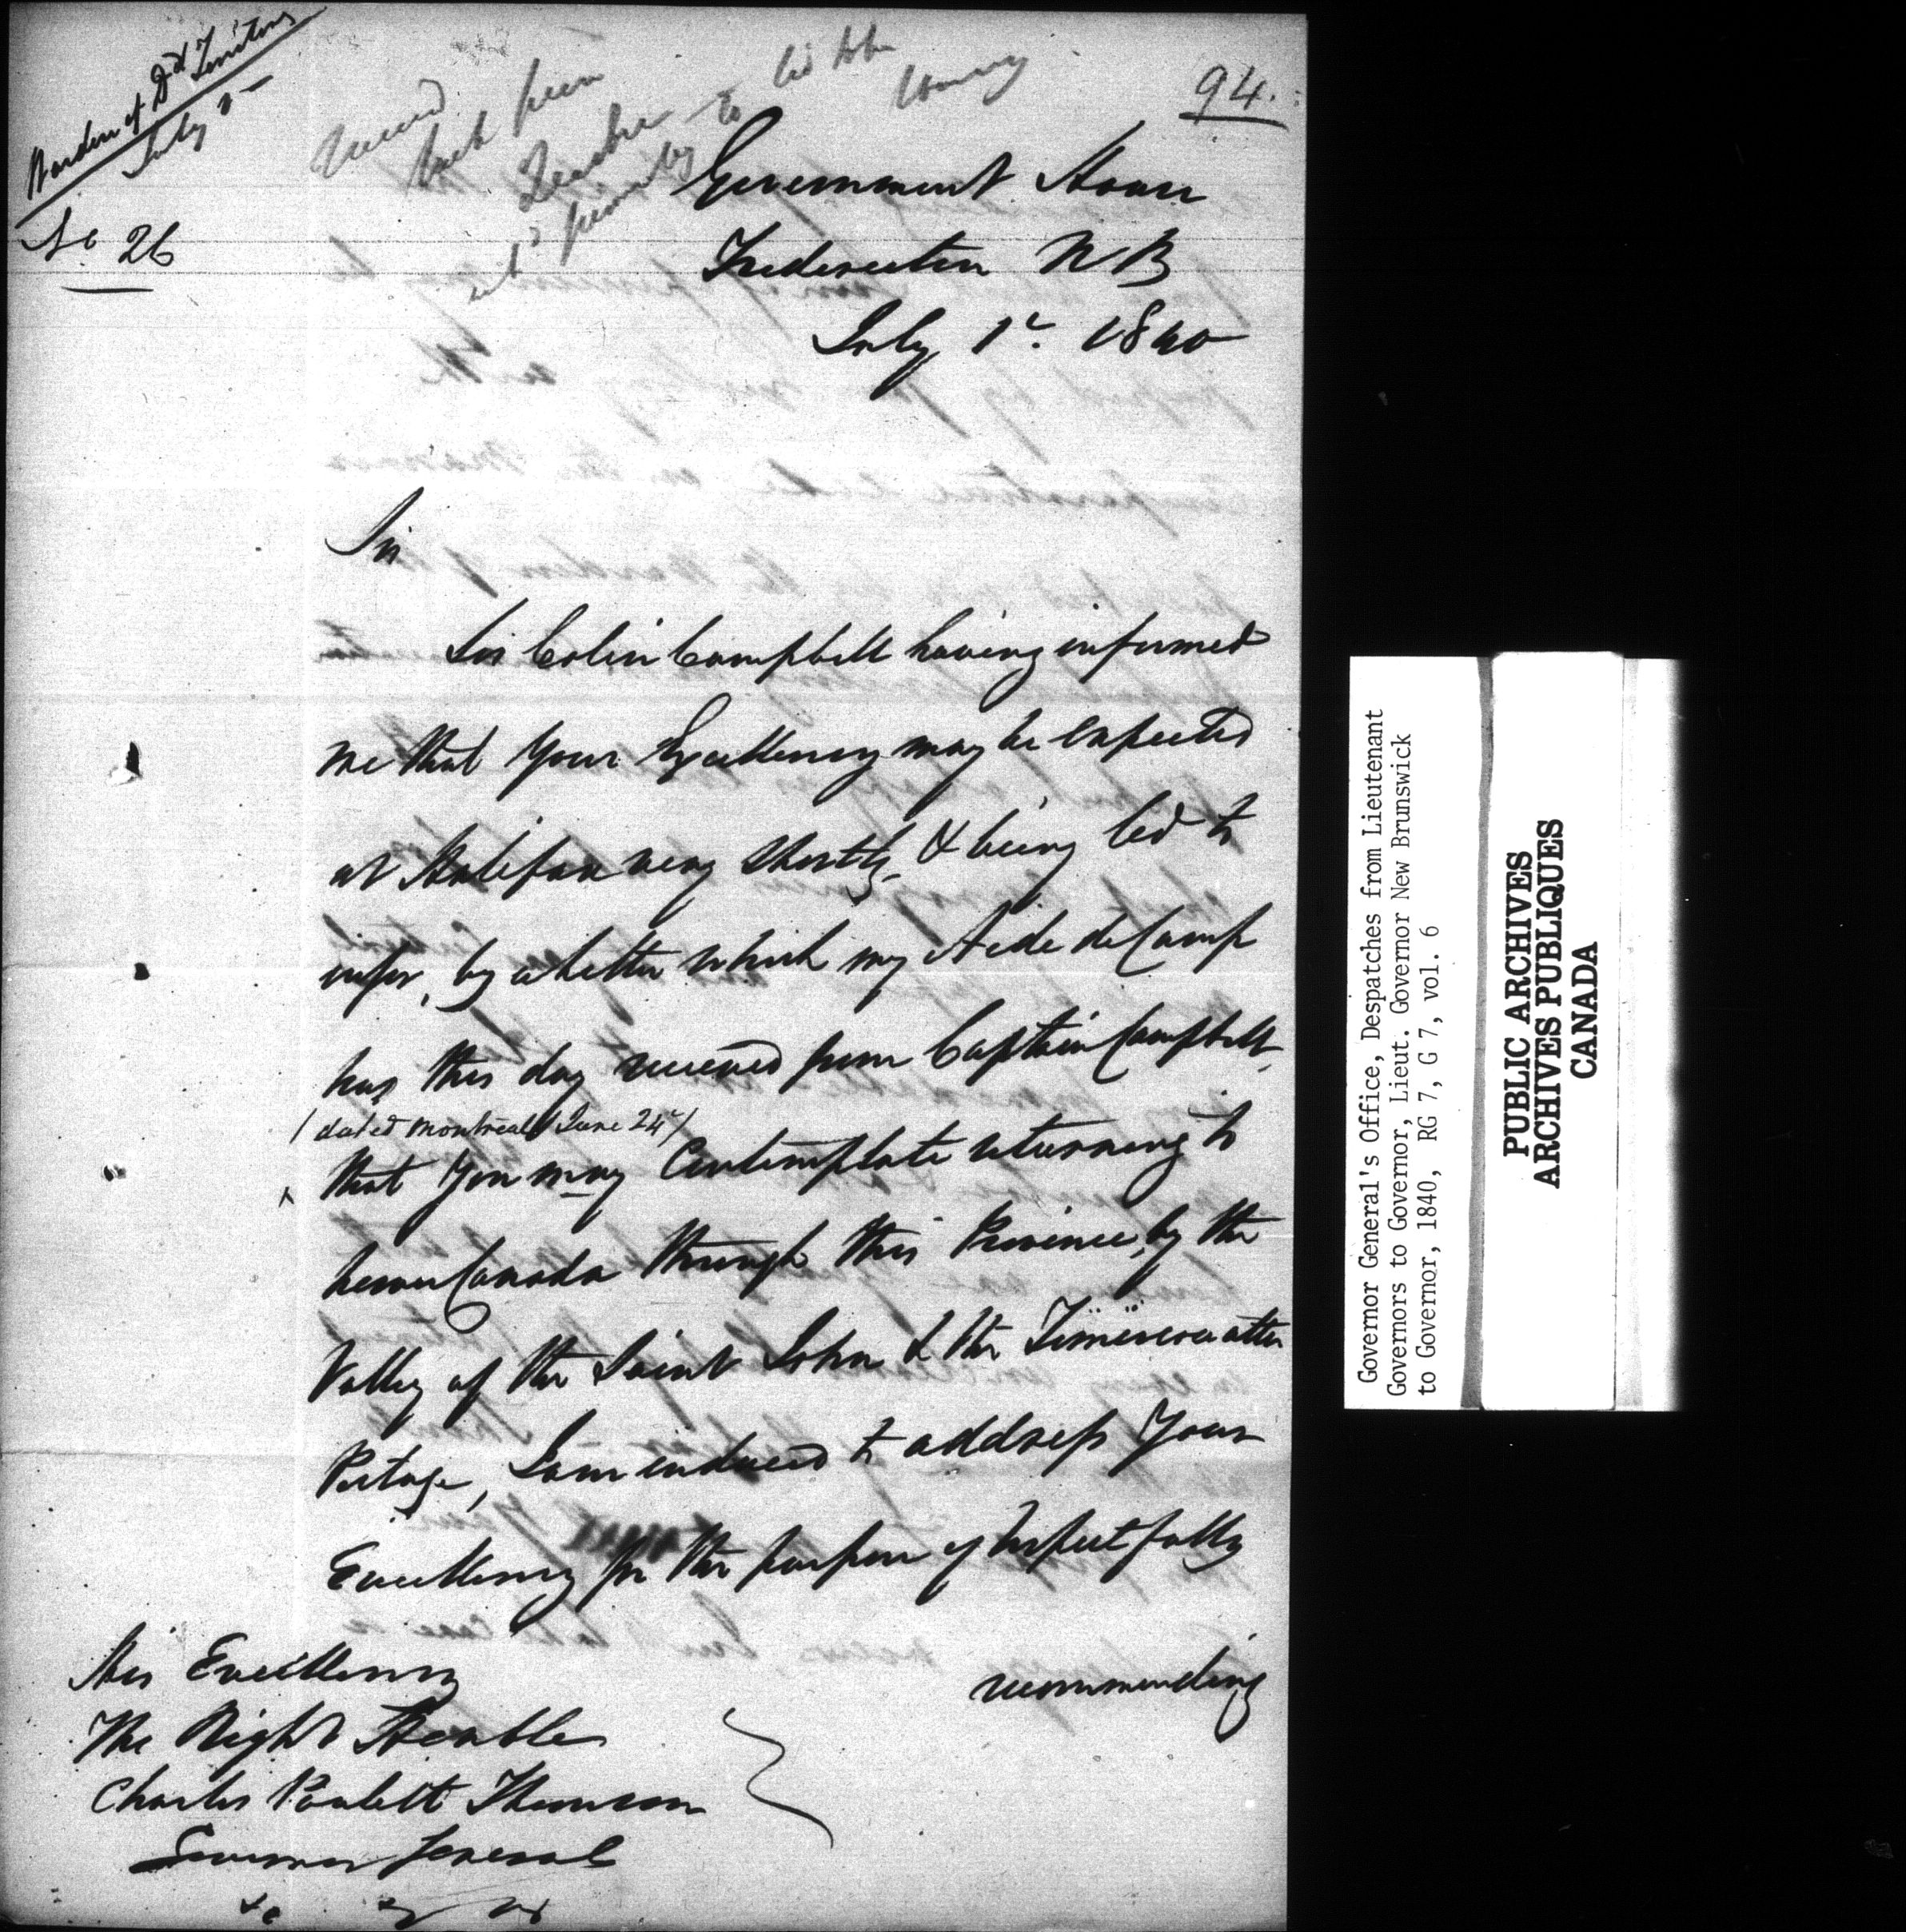 Warden of Dd Territory
July 5
No 26
94.
Government House
Fredericton NB
July 1st. 1840
Sir
Sir Colin Campbell having informed
me that Your Excellency may be expected
at Halifax very shortly, & being led to
infer, by a letter which my Aide de Camp
has this day received from Captain Campbell,
(dated Montreal June 24th)
that You may Contemplate returning to
Lower Canada through this Province, by the
Valley of the Saint John & the Timiscouatta
Portage, I am induced to address Your
Excellency for the purpose of respectfully
recommending
His Excellency
The Right Honble
Charles Poulett Thomson
Governor General
&c &c &c
Governor General's Office, Despatches from Lieutenant
Governors to Governor, Lieut. Governor New Brunswick
to Governor, 1840, RG 7, G 7, vol. 6
PUBLIC ARCHIVES
ARCHIVES PUBLIQUES
CANADA